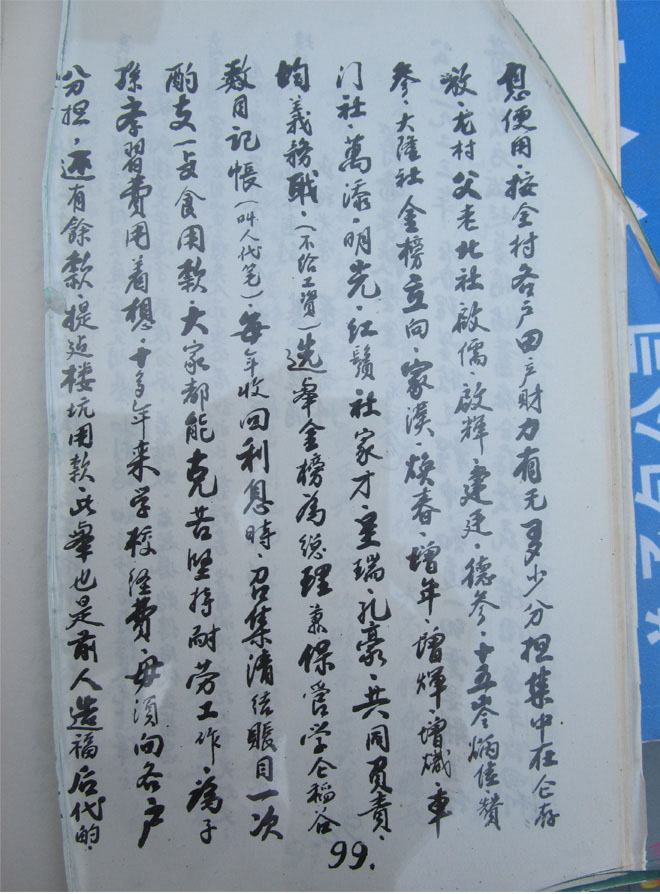 息便用·按全村各户田产财力有无多少分担集中在仓存
敬·尤村·父老北社啟儒·啟輝·建廷·德参·十五岺炳佳贊
参·大陸社金榜立向·家漢·煥春·增年·增煇·增熾·車
门社·萬添·明光·红鬚社家才·呈瑞·孔豪·共同負責·
均義務职·(不给工資)选举金榜為总理兼保管学仓稻谷
数目记帳(叫人代笔)每年收回利息時·召集清结賬目一次
酌支一点食用款·大家都能克苦坚持耐劳工作·為子
孫学習費用着想·十多年来学校经費·毋須向各户
分担·还有餘款·提近楼坑用款·此举也是前人造福后代的·
99.
公司